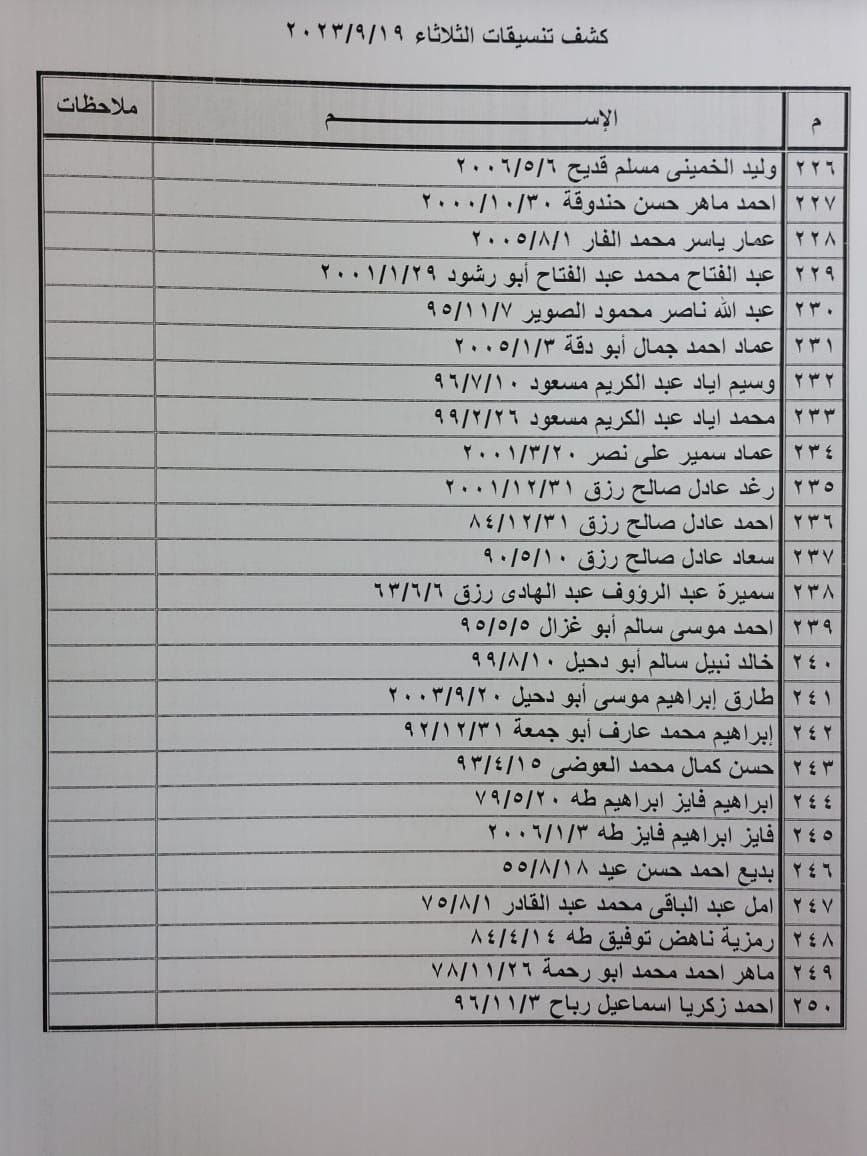 كشف تنسيقات الثلاثاء ٢٠٢٣/٩/١٩
م الإســـــم ملاحظات
٢٢٦ وليد الخمينى مسلم قديح ٢٠٠٦/٥/٦
٢٢٧ احمد ماهر حسن حندوقة ٢٠٠٠/١٠/٣٠
٢٢٨ عمار ياسر محمد الفار ٢٠٠٥/٨/١
٢٢٩ عبد الفتاح محمد عبد الفتاح أبو رشود ٢٠٠١/١/٢٩
٢٣٠ عبد الله ناصر محمود الصوير ٩٥/١١/٧
٢٣١ عماد احمد جمال أبو دقة ٢٠٠٥/١/٣
٢٣٢ وسيم اياد عبد الكريم مسعود ٩٦/٧/١٠
٢٣٣ محمد اياد عبد الكريم مسعود ٩٩/٢/٢٦
٢٣٤ عماد سمير على نصر ٢٠٠١/٣/٢٠
٢٣٥ رغد عادل صالح رزق ٢٠٠١/١٢/٣١
٢٣٦ احمد عادل صالح رزق ٨٤/١٢/٣١
٢٣٧ سعاد عادل صالح رزق ٩٠/٥/١٠
٢٣٨ سميرة عبد الرؤوف عبد الهادى رزق ٦٣/٦/٦
٢٣٩ احمد موسى سالم أبو غزال ٩٥/٥/٥
٢٤٠ خالد نبيل سالم أبو دحيل ٩٩/٨/١٠
٢٤١ طارق إبراهيم موسى أبو دحيل ٢٠٠٣/٩/٢٠
٢٤٢ إبراهيم محمد عارف أبو جمعة ٩٢/١٢/٣١
٢٤٣ حسن كمال محمد العوضى ٩٣/٤/١٥
٢٤٤ ابراهيم فايز ابراهيم طه ٧٩/٥/٢٠
٢٤٥ فايز ابراهيم فايز طه ٢٠٠٦/١/٣
٢٤٦ بديع احمد حسن عيد ٥٥/٨/١٨
٢٤٧ امل عبد الباقى محمد عبد القادر ٧٥/٨/١
٢٤٨ رمزية ناهض توفيق طه ٨٤/٤/١٤
٢٤٩ ماهر احمد محمد ابو رحمة ٧٨/١١/٢٦
٢٥٠ احمد زكريا اسماعيل رباح ٩٦/١١/٣